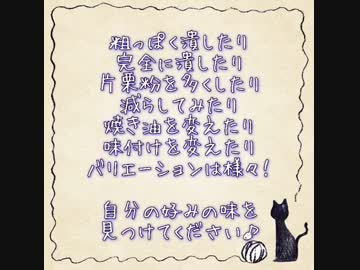 粗っぽく潰したり
完全に潰したり
片栗粉を多くしたり
減らしてみたり
焼き油を変えたり
味付けを変えたり
バリエーションは様々！
自分の好みの味を
見つけてください♪